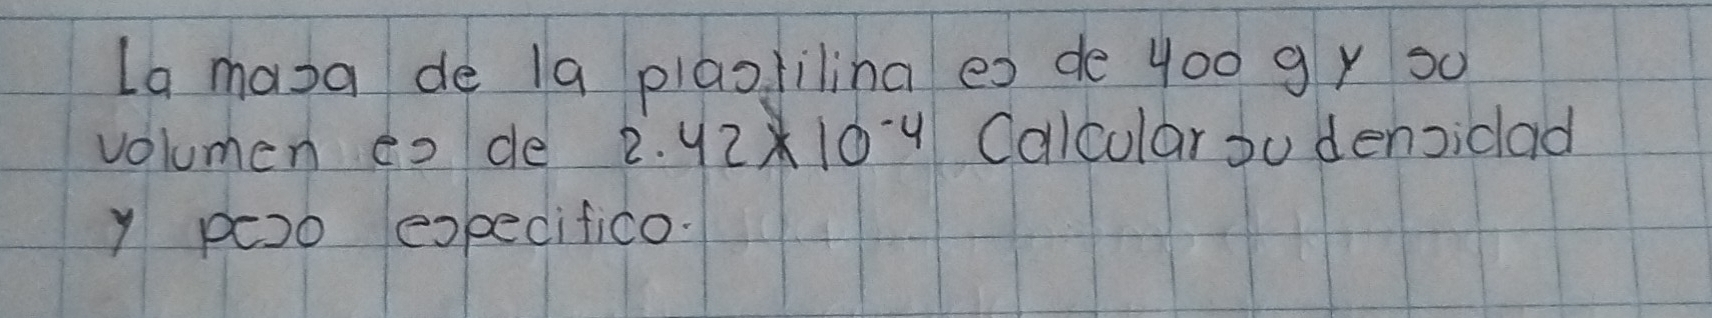 La masa de la plastilina es de 400 g y su
volumen es de 2.42x10⁻⁴ Calcular su densidad
y peso especifico.